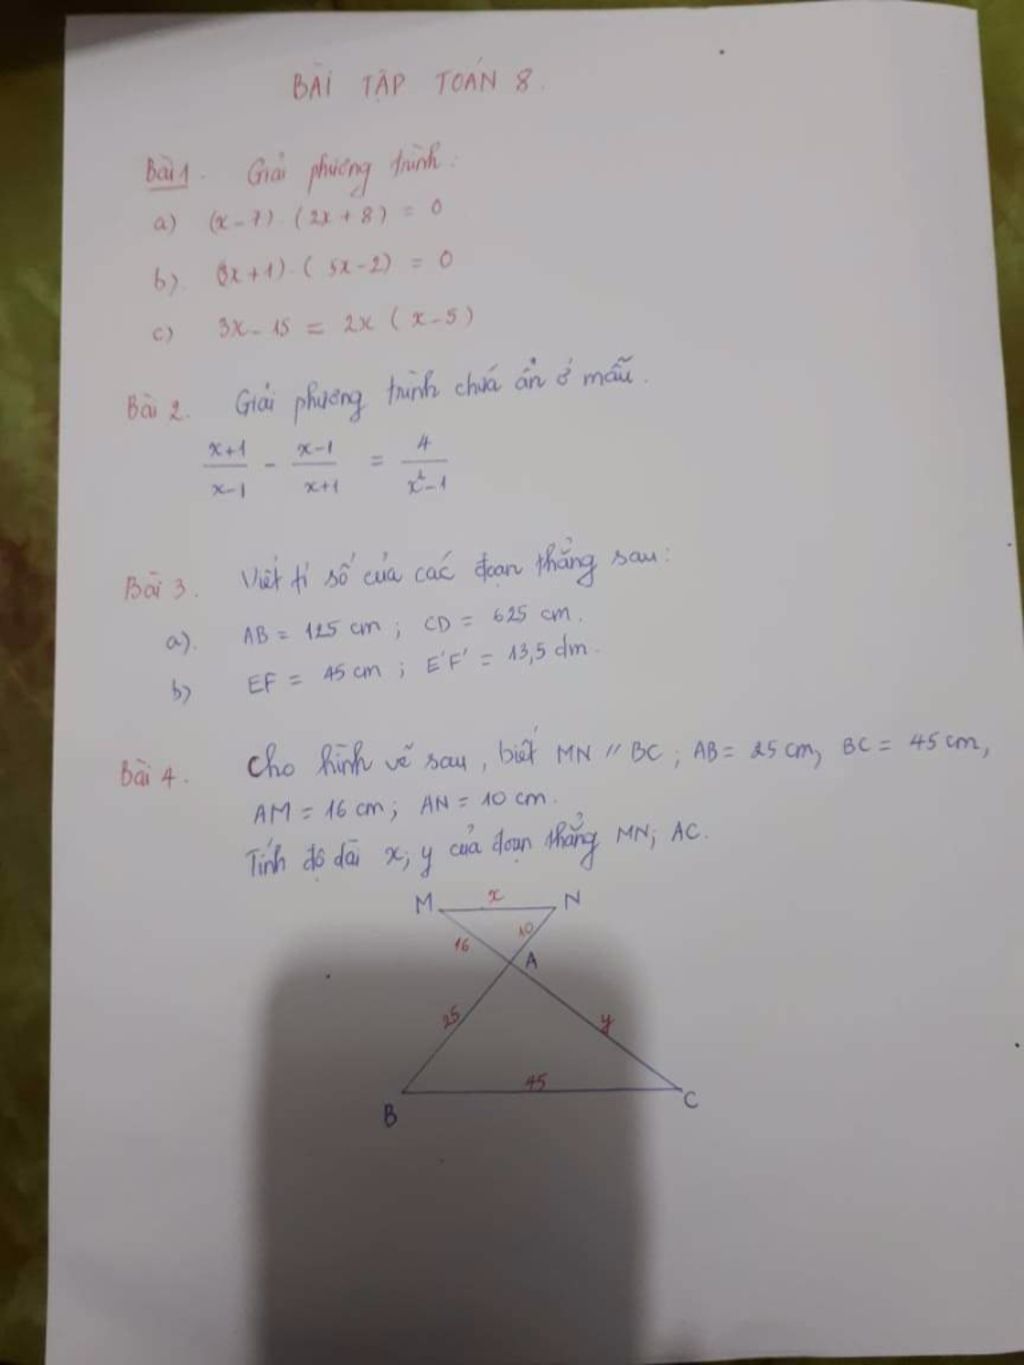 BÀI TẬP TOÁN 8.
Bài 1. Giải phương trình:
a) (x-7).(2x+8) = 0
b). (3x+1).(5x-2) = 0
c) 3x-15 = 2x(x-5)
Bài 2. Giải phương trình chứa ẩn ở mẫu.
x+1/x-1 - x-1/x+1 = 4/x²-1
Bài 3. Viết tỉ số của các đoạn thẳng sau:
a). AB = 125 cm; CD = 625 cm.
b) EF = 45 cm; E'F' = 13,5 dm.
Bài 4. Cho hình vẽ sau, biết MN // BC; AB = 25 cm, BC = 45 cm,
AM = 16 cm; AN = 10 cm.
Tính độ dài x, y của đoạn thẳng MN; AC.
M x N
16 10
A
25 y
45
B C